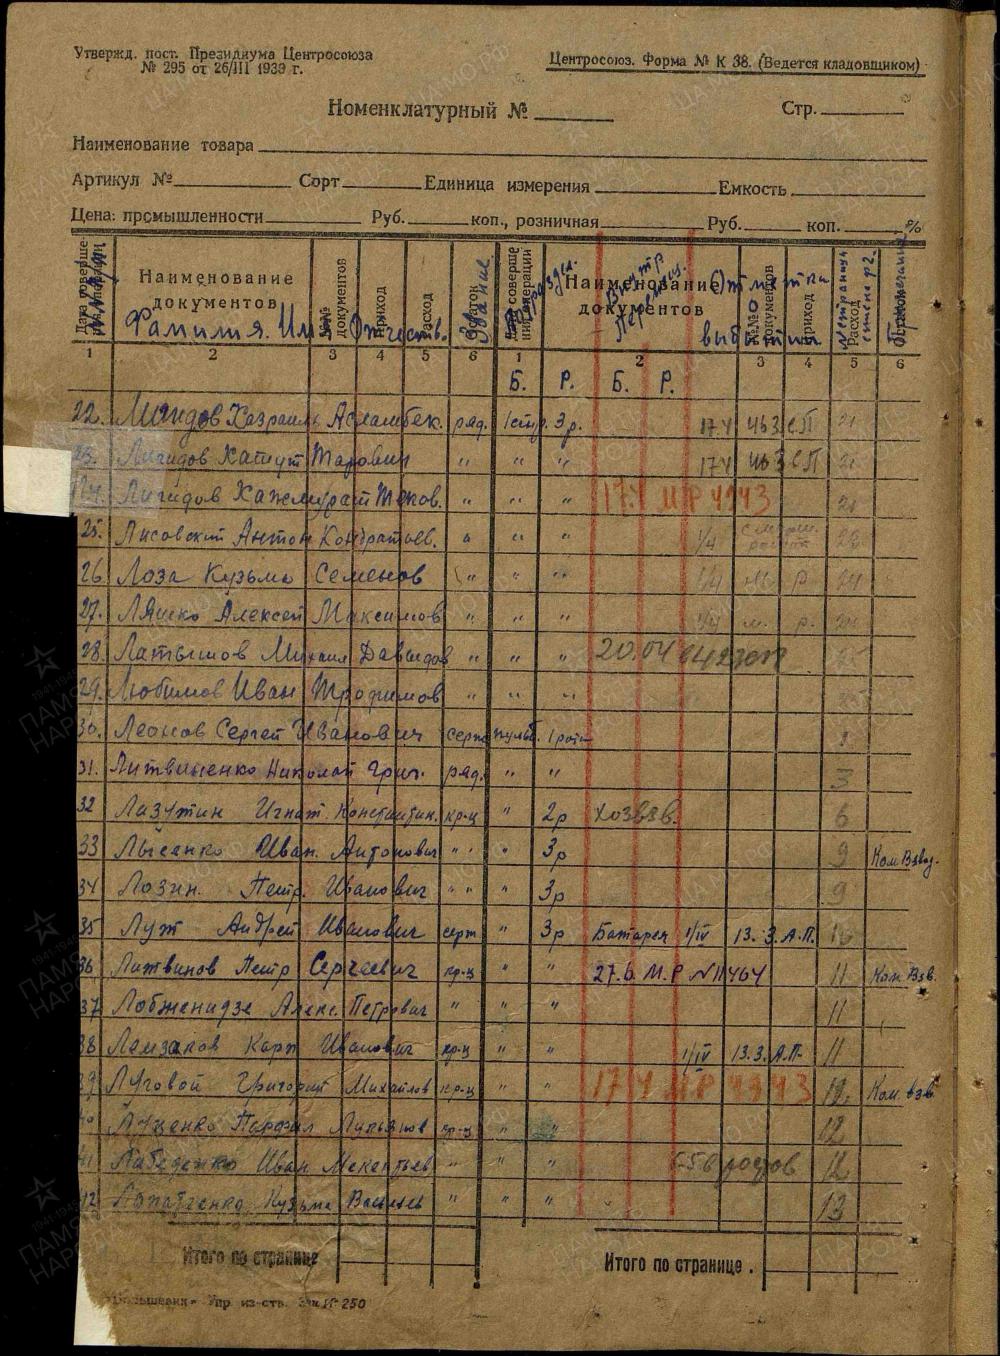 Утвержд. пост. Президиума Центросоюза
№ 295 от 26/III 1939 г.
Центросоюз. Форма № К 38. (Ведется кладовщиком)
Номенклатурный №
Стр.
Наименование товара
Артикул № Сорт Единица измерения Емкость
Цена: промышленности Руб. коп., розничная Руб. коп. %
Наименование документов №№ документов Приход Расход Остаток Наименование документов №№ документов Приход Расход
Фамилия. Имя Отчеств. Звание Отметка выбытия
1 2 3 4 5 6 1 2 3 4 5 6
Б. Р. Б. Р.
22. Лигидов Хазраил Асламбек. ряд. 1стр. 3р. 17.4 463 СП 21
23. Лигидов Хатут Тарович " " " 17 4 463 СП 21
24. Лигидов Хажмурат " " " 17.4 МР 4943 21
25. Лисовский Антон Кондратьев. " " " 1/4
26. Лоза Кузьма Семенов " " " 1/4 М. Р. 24
27. Ляшко Алексей Максимов " " " 1/4 м. р. 24
28. Латышов Михаил Давыдов " " " 20.04 25
29. Любимов Иван Трофимов " " "
30. Леонов Сергей Иванович серж. пульб. 1 рота
31. Литвиненко Николай Григ. ряд. " " 3
32 Лазутин Игнат. Константин. кр-ц " 2р Хозвзв. 6
33 Лысенко Иван. Антонович " " 3р 9 Ком Взвод.
34 Лозин. Петр. Иванович " " 3р 9
35 Луж Андрей Иванович серж " 3р Батарея 1/IV 13.3.А.П. 10
36 Литвинов Петр Сергеевич кр-ц " " 27.6. М.Р. №11464 11 Ком. Взв.
37 Лобженидзе Алекс. Петрович " " " 11
38 Ламзаков Карп Иванович кр-ц " " 1/IV 13.3.А.П. 11
39 Луговой Григорий Михайлов кр-ц " " 17 4 МР 4943 12. Ком. взв.
40 Луценко Парфил Лукьянов кр-ц " " 12
41 Иван Мекентьев " " " 12
42 Лопатченко Кузьма Васильев " " " 13
Итого по странице Итого по странице .
Упр. из-ств. Зак. № 250